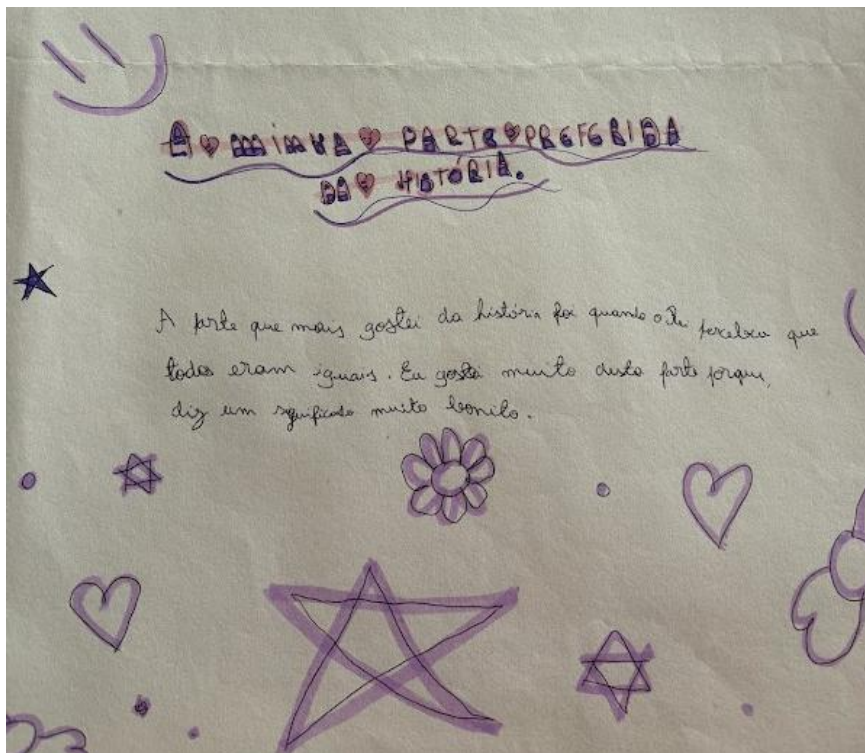 A MINHA PARTE PREFERIDA
DA HISTÓRIA.
A parte que mais gostei da história foi quando o Rei percebeu que
todos eram iguais. Eu gostei muito desta parte porque,
diz um significado muito bonito.